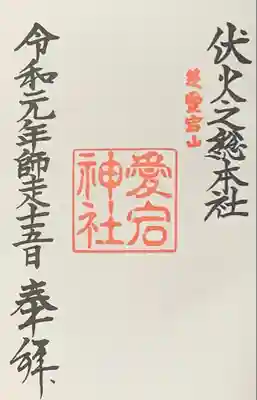 伏火之総本社
芝愛宕山
愛宕
神社
令和元年師走十五日
奉拝